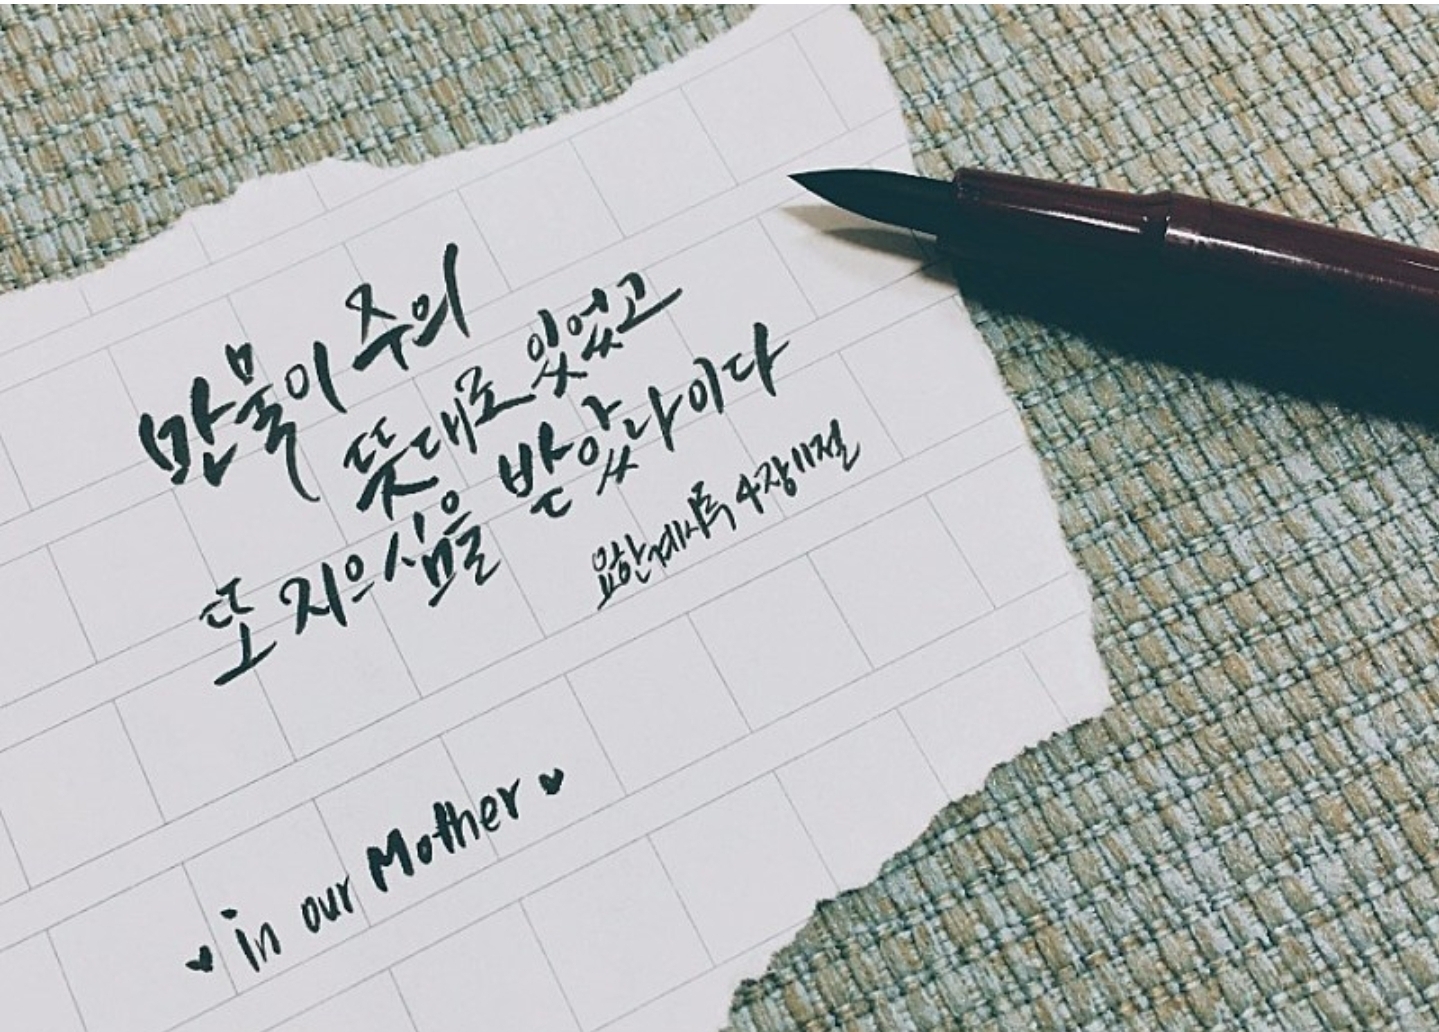 만물이 주의
뜻대로 있었고
또 지으심을 받았나이다
요한계시록 4장 11절
in our Mother